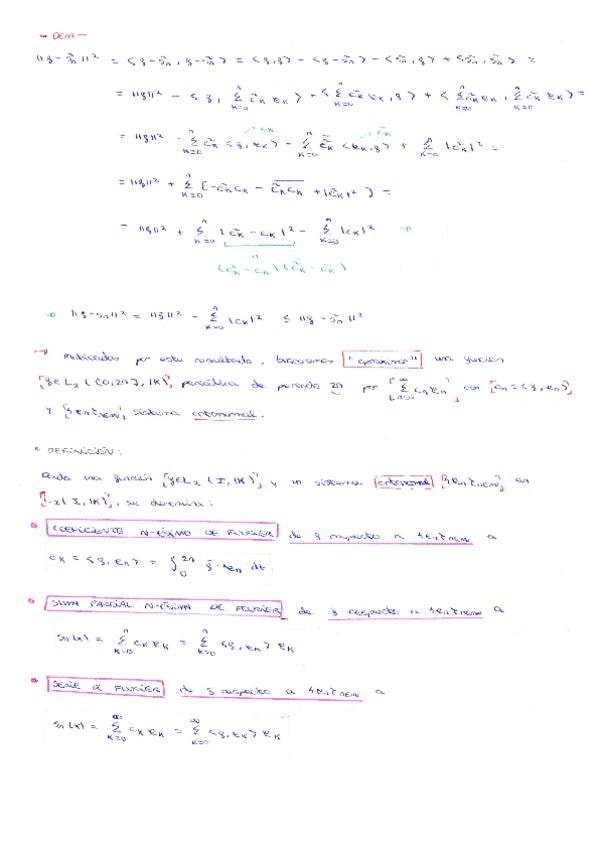 - DEM -
||f - s̃n||² = <f - s̃n, f - s̃n> = <f,f> - <f - s̃n> - <s̃n, f> + <s̃n, s̃n> =
= ||f||² - <f, Σ_{k=0}^{n} c̃k ek> - <Σ_{k=0}^{n} c̃k ek, f> + <Σ_{k=0}^{n} c̃k ek, Σ_{k=0}^{n} c̃k ek> =
= ||f||² - Σ_{k=0}^{n} c̃k <f, ek> - Σ_{k=0}^{n} c̃k <ek, f> + Σ_{k=0}^{n} |c̃k|² =
= ||f||² + Σ_{k=0}^{n} [-c̃k ck - c̃k ck + |c̃k|²] =
= ||f||² + Σ_{k=0}^{n} |c̃k - ck|² - Σ_{k=0}^{n} |ck|² ⇒
(c̃k - ck)(c̃k - ck)
⇒ ||f - sn||² = ||f||² - Σ_{k=0}^{n} |ck|² ≤ ||f - s̃n||²
→ Motivados por este resultado, buscaremos "aproximar" una función
f∈L2([0,2π], IK), periódica de periodo 2π por Σ_{n=0}^{∞} cn en con cn = <f, en>
y {en}n∈IN sistema ortonormal.
• DEFINICIÓN:
Dada una función f∈L2(I, IK) y un sistema ortonormal {en}n∈IN en
L2(I, IK), se denomina:
COEFICIENTE N-ÉSIMO DE FOURIER de f respecto a {en}n∈IN a
ck = <f, en> = ∫_0^{2π} f · en dt.
SUMA PARCIAL N-ÉSIMA DE FOURIER de f respecto a {en}n∈IN a
sn(x) = Σ_{k=0}^{n} ck ek = Σ_{k=0}^{n} <f, ek> ek
SERIE DE FOURIER de f respecto a {en}n∈IN a
sn(x) = Σ_{k=0}^{∞} ck ek = Σ_{k=0}^{∞} <f, ek> ek